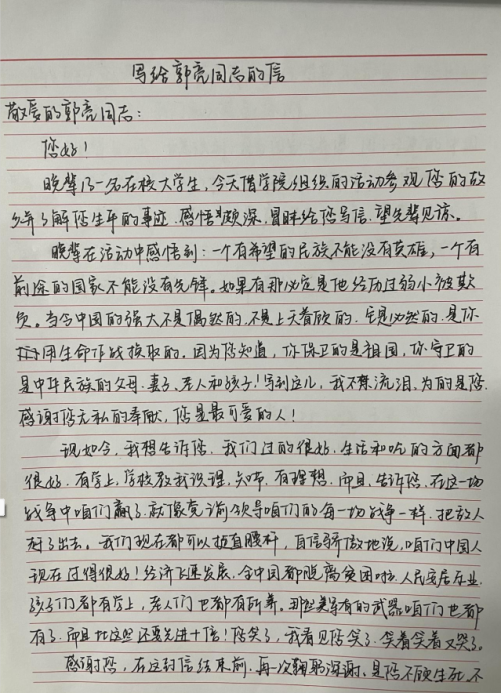 写给郭亮同志的信
敬爱的郭亮同志：
您好！
晚辈乃一名在校大学生，今天借学院组织的活动参观您的故
乡并了解您生平的事迹，感悟颇深，冒昧给您写信，望先辈见谅。
晚辈在活动中感悟到：一个有希望的民族不能没有英雄，一个有
前途的国家不能没有先锋。如果有那必定是他经历过弱小被欺
负。当今中国的强大不是偶然的，不是上天眷顾的，它是必然的，是你
们用生命作战换取的。因为您知道，你保卫的是祖国，你守卫的
是中华民族的父母、妻子、老人和孩子！写到这儿，我不禁流泪，为的是您。
感谢您无私的奉献，您是最可爱的人！
现如今，我想告诉您，我们过的很好，生活和吃的方面都
很好，有学上，学校教我说理、知布，有理想，而且，告诉您，在这一切
战争中咱们赢了，就像党前领导咱们的每一切战争一样，把敌人
赶了出去。我们现在都可以挺直腰杆，自信骄傲地说，咱们中国人
现在过得很好！经济飞速发展，全中国都脱离贫困啦，人民安居乐业，
孩子们都有学上，老人们也都有所养。那些美军有的武器咱们也都
有了，而且比这些还要先进十倍！您笑了，我看见您笑了，笑着笑着又哭了。
感谢您，在这封信结束前，再一次鞠躬深谢，是您不顾生死，不